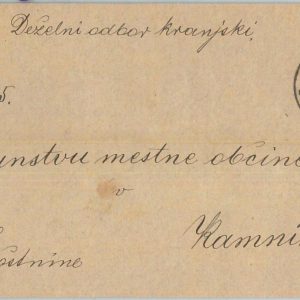 Deželni odbor kranjski.
5.
unstvu mestne občine
v
Kamni
ostnine